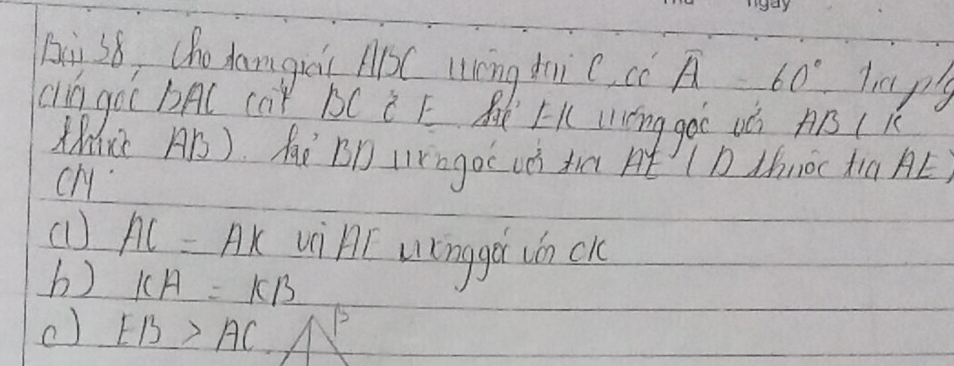 ngày
Bài 38. Cho tam giác ABC vuông tại C, có Â = 60° Tia p/g
của góc BAC cắt BC ở E kẻ EK vuông góc với AB (K
thuộc AB). kẻ BD vuông góc với tia AE (D thuộc tia AE)
CM:
a) AC = AK và AE vuông góc với CK
b) KA = KB
c) EB > AC
B